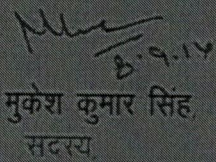 8.9.14
मुकेश कुमार सिंह,
सदस्य